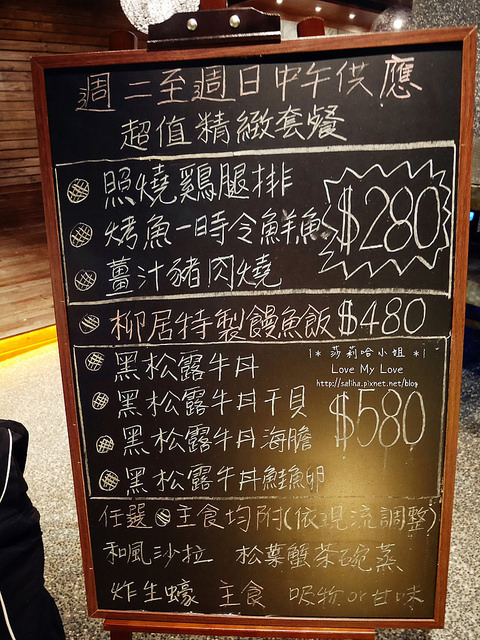 週二至週日中午供應
超值精緻套餐
照燒鷄腿排
烤魚-時令鮮魚
薑汁豬肉燒
$280
柳居特製饅魚飯$480
黑松露牛丼
黑松露牛丼干貝
黑松露牛丼海膽
黑松露牛丼鮭魚卵
$580
|* 莎莉哈小姐 *|
Love My Love
http://saliha.pixnet.net/blog
任選 主食均附(依現流調整)
和風沙拉 松葉蟹茶碗蒸
炸生蠔 主食 吸物or甘味